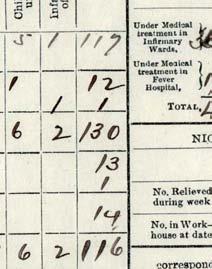 Chi
u
Infa
of
5 1 117
1 12
1 1
6 2 130
13
1
14
6 2 116
Under Medical
treatment in
Infirmary
Wards,
Under Medical
treatment in
Fever
Hospital,
TOTAL,
NIG
No. Relieved
during week
No. in Work-
house at date
correspond